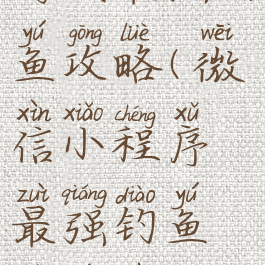 yú gōng lüè wēi
鱼攻略(微
xìn xiǎo chéng xǔ
信小程序
zuì qiáng diào yú
最强钓鱼